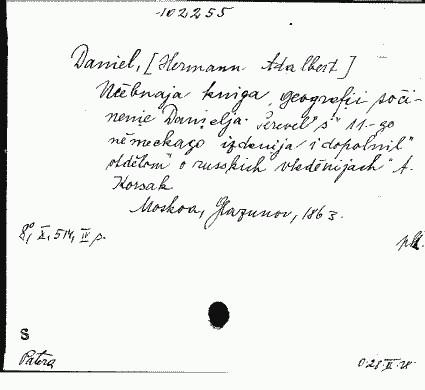 102255
Daniel, [Hermann Adalbert]
Učebnaja kniga geografii soči-
nenie Danielja. Perevel" s" 11-go
německago izdanija i dopolnil"
otdělom" o russkich vladěnijach" A.
Korsak
Moskva, Glazunov, 1863.
8°, X, 514, IV p.
S
Patera